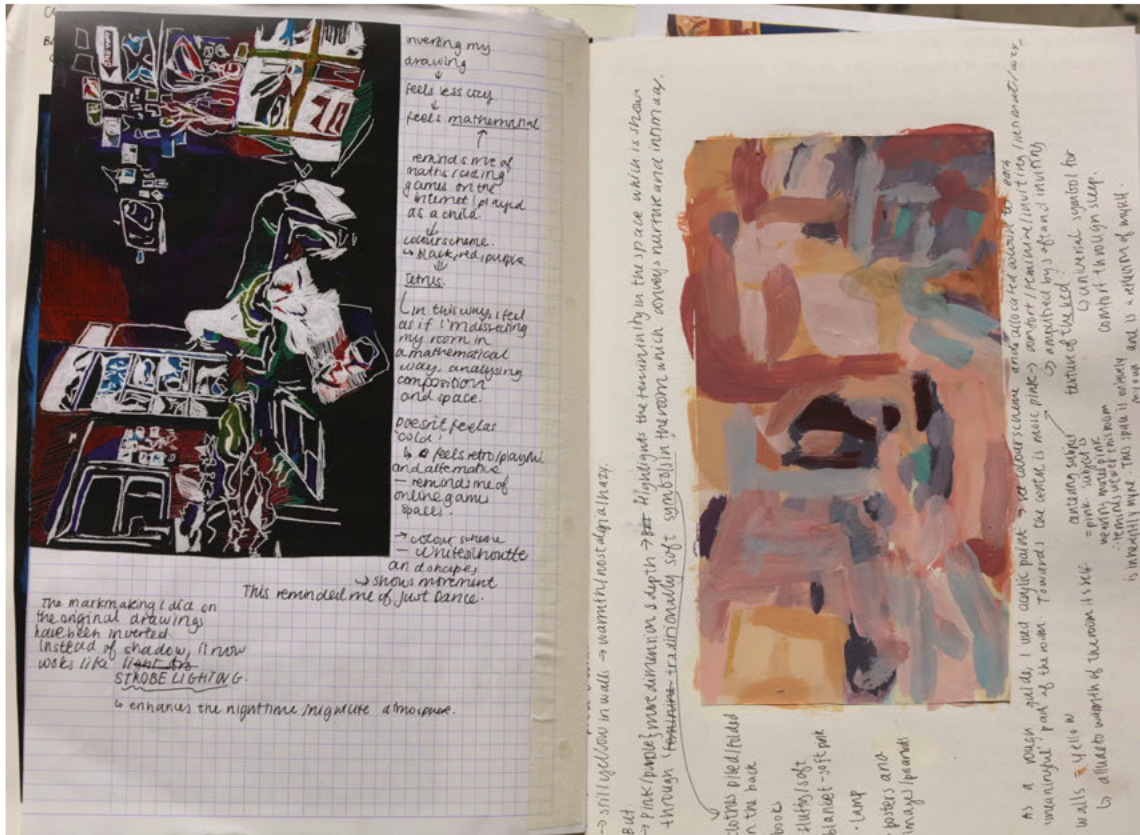 inverting my
drawing
↓
feels less cozy
↓
feels mathematical
↑
reminds me of
maths/coding
games on the
internet I played
as a child.
↓
colour scheme.
↳ black, red, purple
↓
Tetris.
In this way, I feel
as if I'm dissecting
my room in
a mathematical
way, analysing
composition
and space.
Doesn't feel as
'cold'
↳ feels retro/playful
and alternative
— reminds me of
online game
spaces.
→ colour scheme
— white silhouette
and shapes
↳ shows movement
This reminded me of Just Dance.
The markmaking I did on
the original drawings
have been inverted.
Instead of shadow, it now
looks like
STROBE LIGHTING.
↳ enhances the nighttime/nightlife atmosphere.
→ still yellow in walls → warmth/nostalgia/hazy.
BUT
→ Pink/purple} more dimension & depth → Highlights the femininity in the space which is shown
through feminine traditionally soft symbols in the room which conveys nurture and intimacy.
clothes piled/folded
in the back
books
fluffy/soft
blanket - soft pink
· lamp
· posters and
images/paintings
As a rough guide, I used acylic paint → colour scheme and allocated colour to each
'meaningful' part of the room. Towards the centre is more pink → comfort/feminine/inviting/intimate/
walls = yellow
↳ allude to warmth of the room itself.
centering subject
= pink. subject is
wearing more pink
∴ reminds viewer this room
is inherently mine. This space is uniquely
mine and is a reflection of myself.
↳ amplified by soft and inviting
texture of the bed
↳ universal symbol for
comfort through sleep.